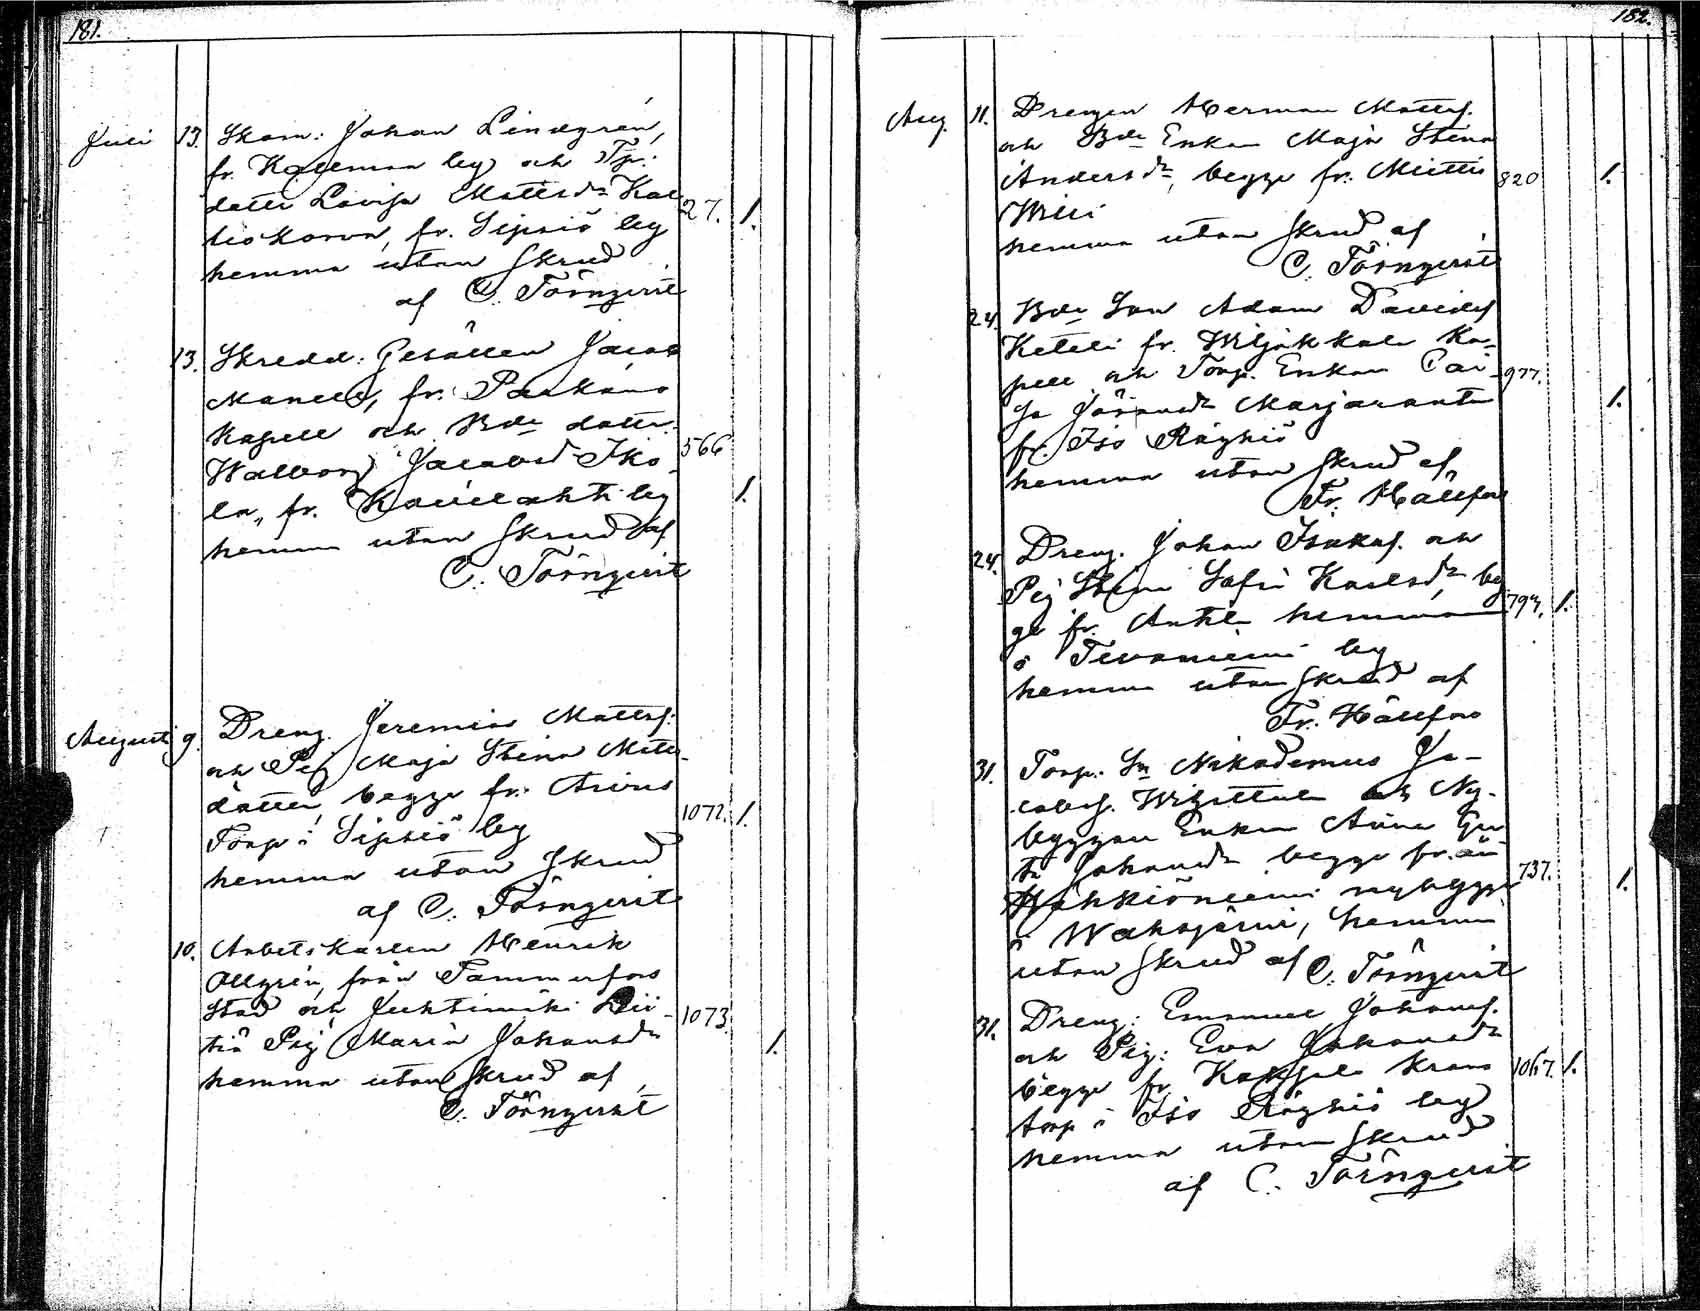 181.
Juli 13. Skom: Johan Lindgrén,
fr. Kallemaa by och Tp.
dotter Lovisa Mattsdr Kal
liokorva, fr. Sipsiö by 27. 1.
hemma utan skrud
af C. Törnqvist
13. Skredd: Gesällen Jacob
Manell, fr. Parkano
Kapell och Bde dotter
Walborg Jacobsd Iko- 566
la, fr. Kovelahti by 1.
hemma utan skrud af
C. Törnqvist
Augusti 9. Dreng. Jeremias Mattsf.
och Pig Maja Stina Matts-
dotter, begge fr. Arvus
Torp i Sipsiö by 1072. 1.
hemma utan skrud
af C. Törnqvist
10. Arbetskarlen Henrik
Ollgrén, från Tammerfors
Stad och Juhtimäki
Pig Maria Johansdr 1073. 1.
hemma utan skrud af
C. Törnqvist
182.
Aug. 11. Drengen Herman Mattsf.
och Bde Enkan Maja Stina
Andersdr, begge fr. Miettis 820 1.
hemma utan skrud af
C. Törnqvist
24. Bde Son Adam Davidsf
Keteli fr. Wiljakkala Ka-
pell och Torp. Enkan Cai- 977.
sa Marjaranta 1.
fr. Iso Röyhiö
hemma utan skrud af
Fr. Hällfors
24. Dreng. Johan Isaksf. och
Pig Stina Sofia Karlsdr beg 797. 1.
ge fr. Antila hemman
i Tevaniemi by
hemma utan skrud af
Fr. Hällfors
31. Torp. Sn Nikodemus Ja-
cobsf. och Ny-
byggare Enkan Anna Gu
sta Johansdr begge från
nybygge 737. 1.
i Wahojärvi, hemma
utan skrud af C. Törnqvist
31. Dreng: Emanuel Johansf.
och Pig: Eva Johansdr
begge fr. 1067. 1.
torp i Iso Röyhiö by
hemma utan skrud
af C. Törnqvist